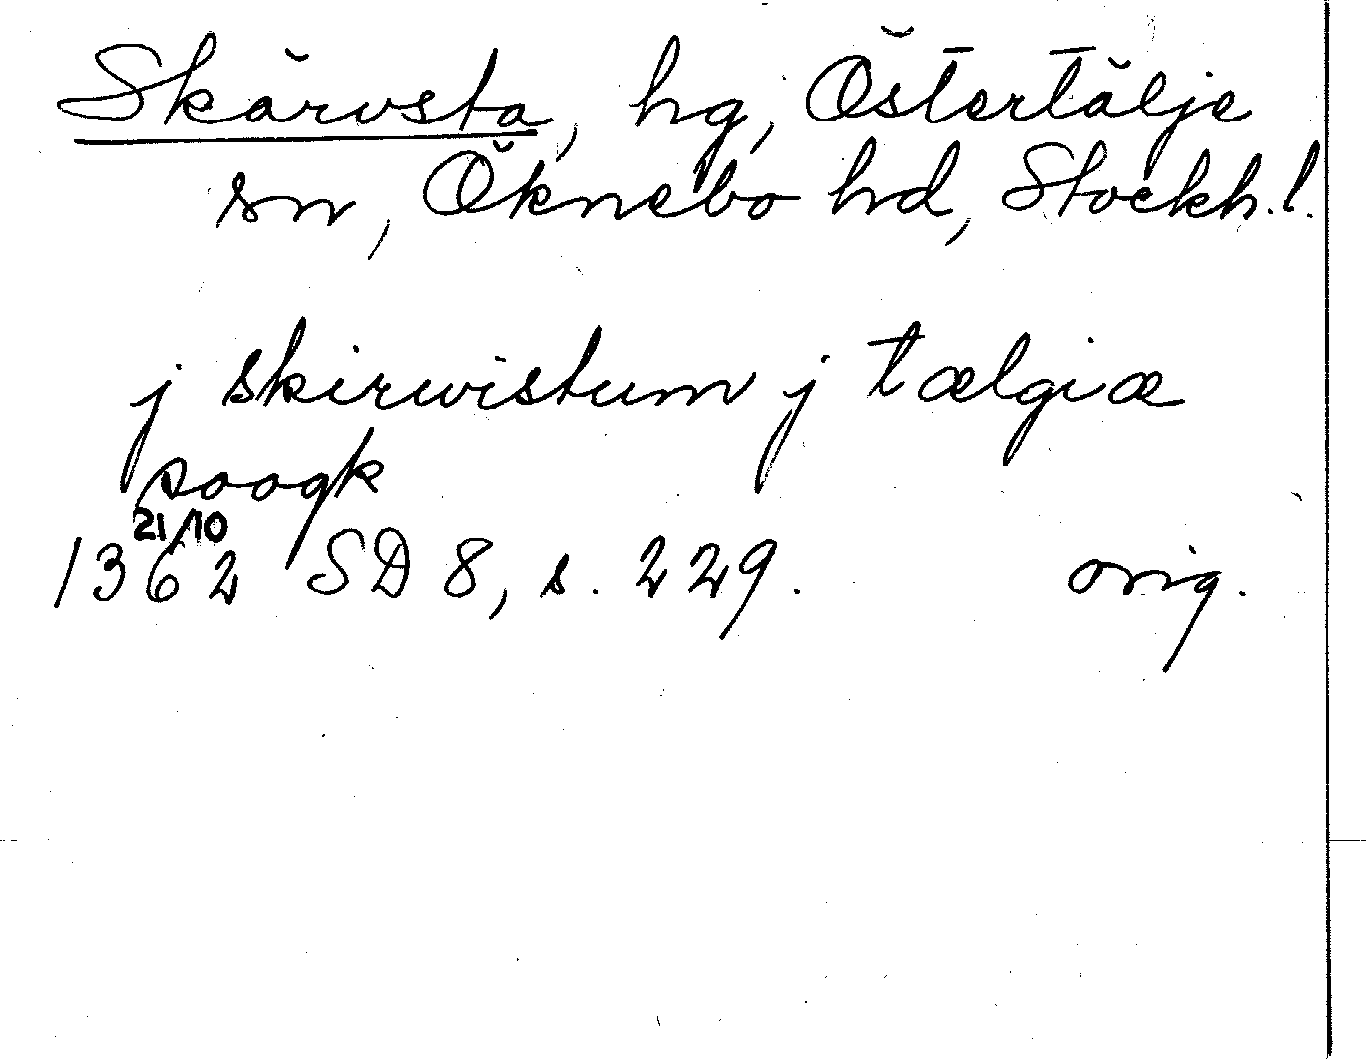 Skärvsta, hg, Östertälje
sn, Öknebo hd, Stockh. l.
j skirwistum j tælgiæ
soogk
21/10
1362 SD 8, s. 229. orig.